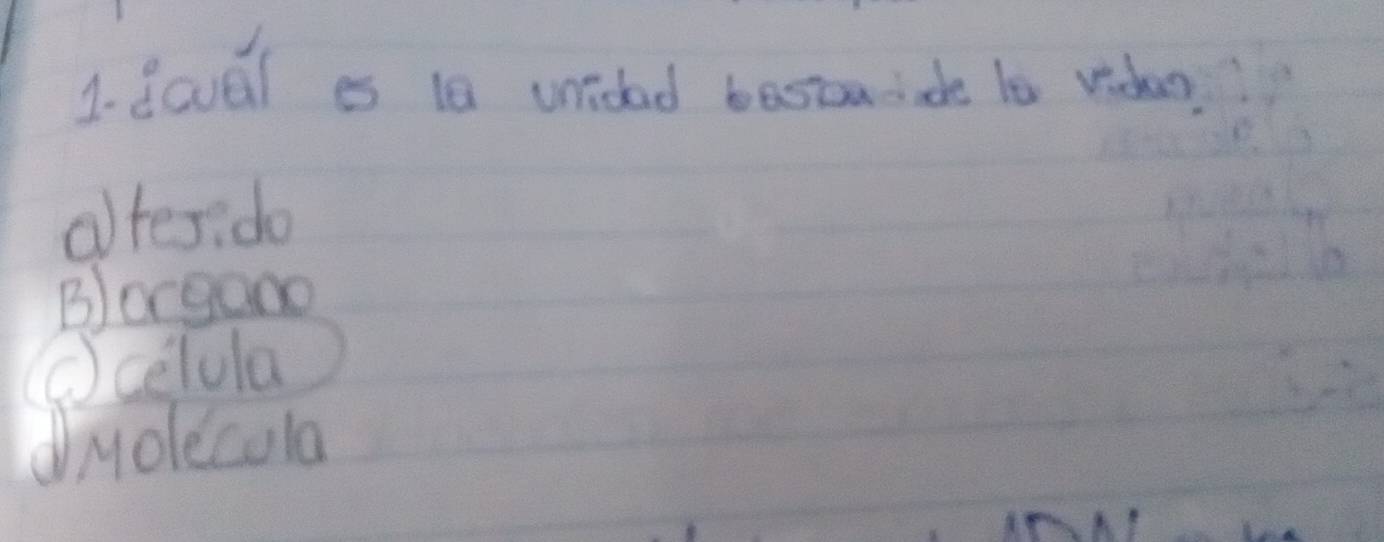 1. ¿cuál es la unidad basica de la vida?
a) tejido
B) organo
c) célula
d) Molécula
ADN